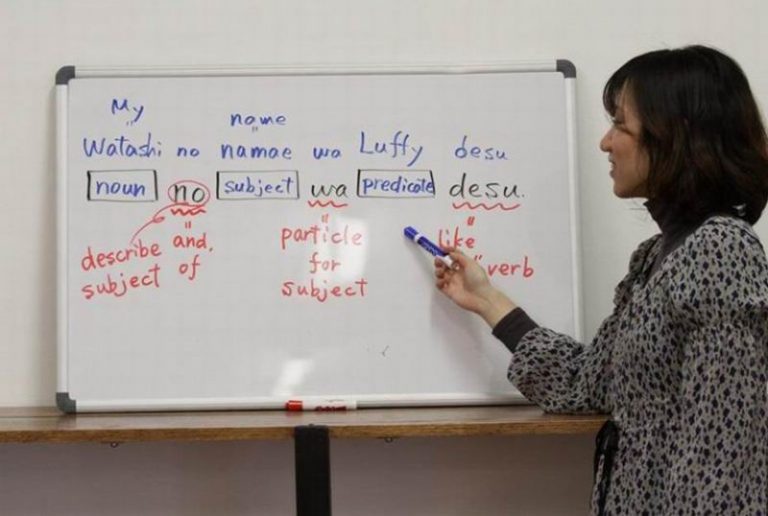 My name
Watashi no namae wa Luffy desu
noun no subject wa predicate desu.
describe and.
subject of
particle
for
subject
like
verb